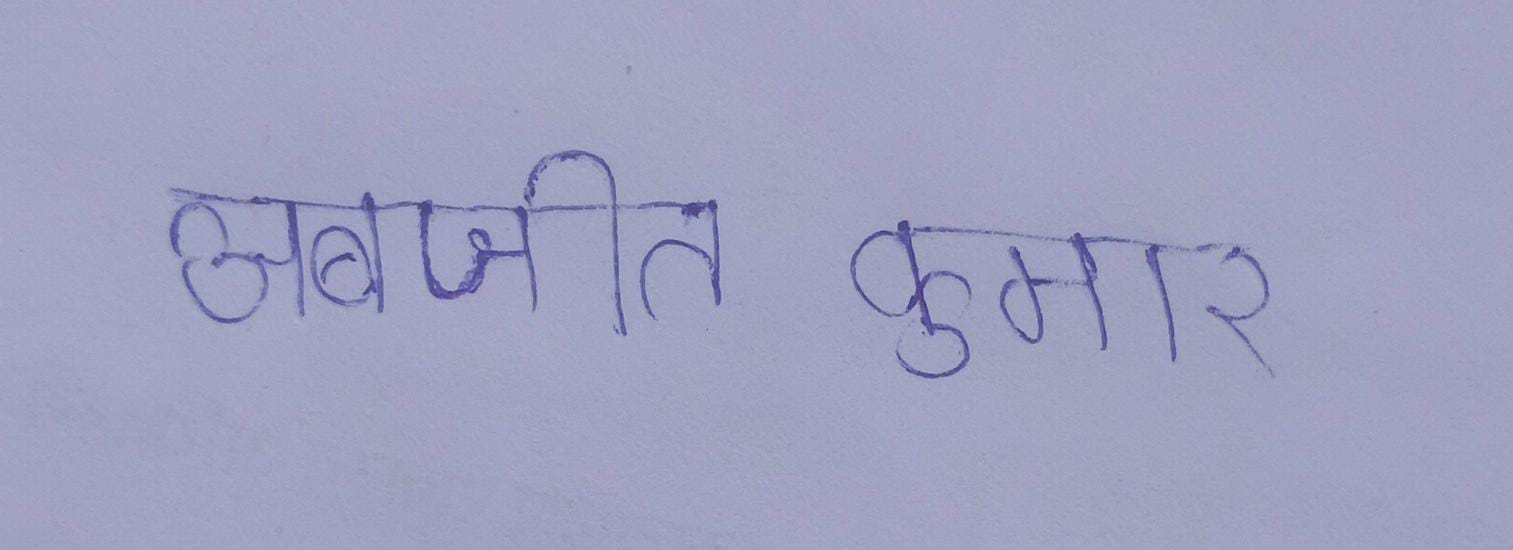 अबजीत कुमार